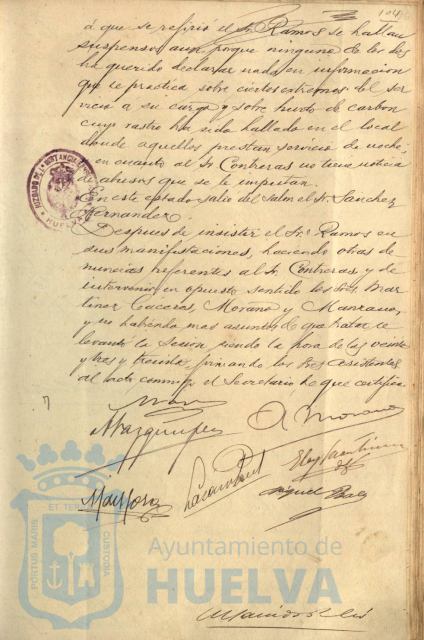 á que se refirió el Sr. Ramos se hallan
suspensos aun porque ninguno de los dos
ha querido declarar nada en informacion
que se practica sobre ciertos extremos del ser
vicio a su cargo y sobre hurto de carbon
cuyo rastro ha sido hallado en el local
donde aquellos prestan servicio de noche;
en cuanto al Sr. Contreras no tiene noticia
de abusos que se le imputan.
En este estado salio del salon el Sr. Sanchez
Hernandez.
Despues de insistir el Sr. Ramos en
sus manifestaciones, haciendo otras de
nuncias referentes al Sr. Contreras, y de
intervenir en opuesto sentido los Sres. Mar
tinez Cáceres, Morano y Manzano,
y no habiendo mas asuntos de que tratar se
levantó la Sesion siendo la hora de las veinte
y tres y treinta, firmando los Sres. asistentes
al acto conmigo el Secretario, de que certifico.
A. Morano
ET TERRÆ
PORTUS MARIS
CUSTODIA
Ayuntamiento de
HUELVA